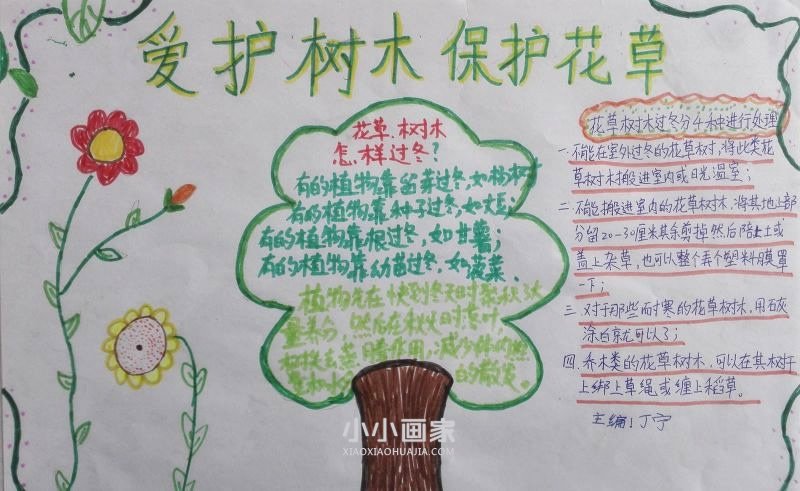 爱护树木 保护花草
花草.树木
怎样过冬?
有的植物靠留芽过冬,如杨树
有的植物靠种子过冬,如大豆;
有的植物靠根过冬,如甘薯;
有的植物靠幼苗过冬,如菠菜.
植物先在快到冬天时累积
量养 然后在秋 时
减少
的散失。
花草树木过冬分4种进行处理
一.不能在室外过冬的花草树木,将此类花
草树木搬进室内或日光温室;
二.不能搬进室内的花草树木,将其地上部
分留20-30厘米其余剪掉然后陪上土或
盖上杂草,也可以整个弄个塑料膜罩
一下;
三.对于那些耐寒的花草树木,用石灰
涂白就可以了;
四.乔木类的花草树木,可以在其树干
上绑上草绳或缠上稻草。
主编:丁宁
小小画家
XIAOXIAOHUAJIA.COM